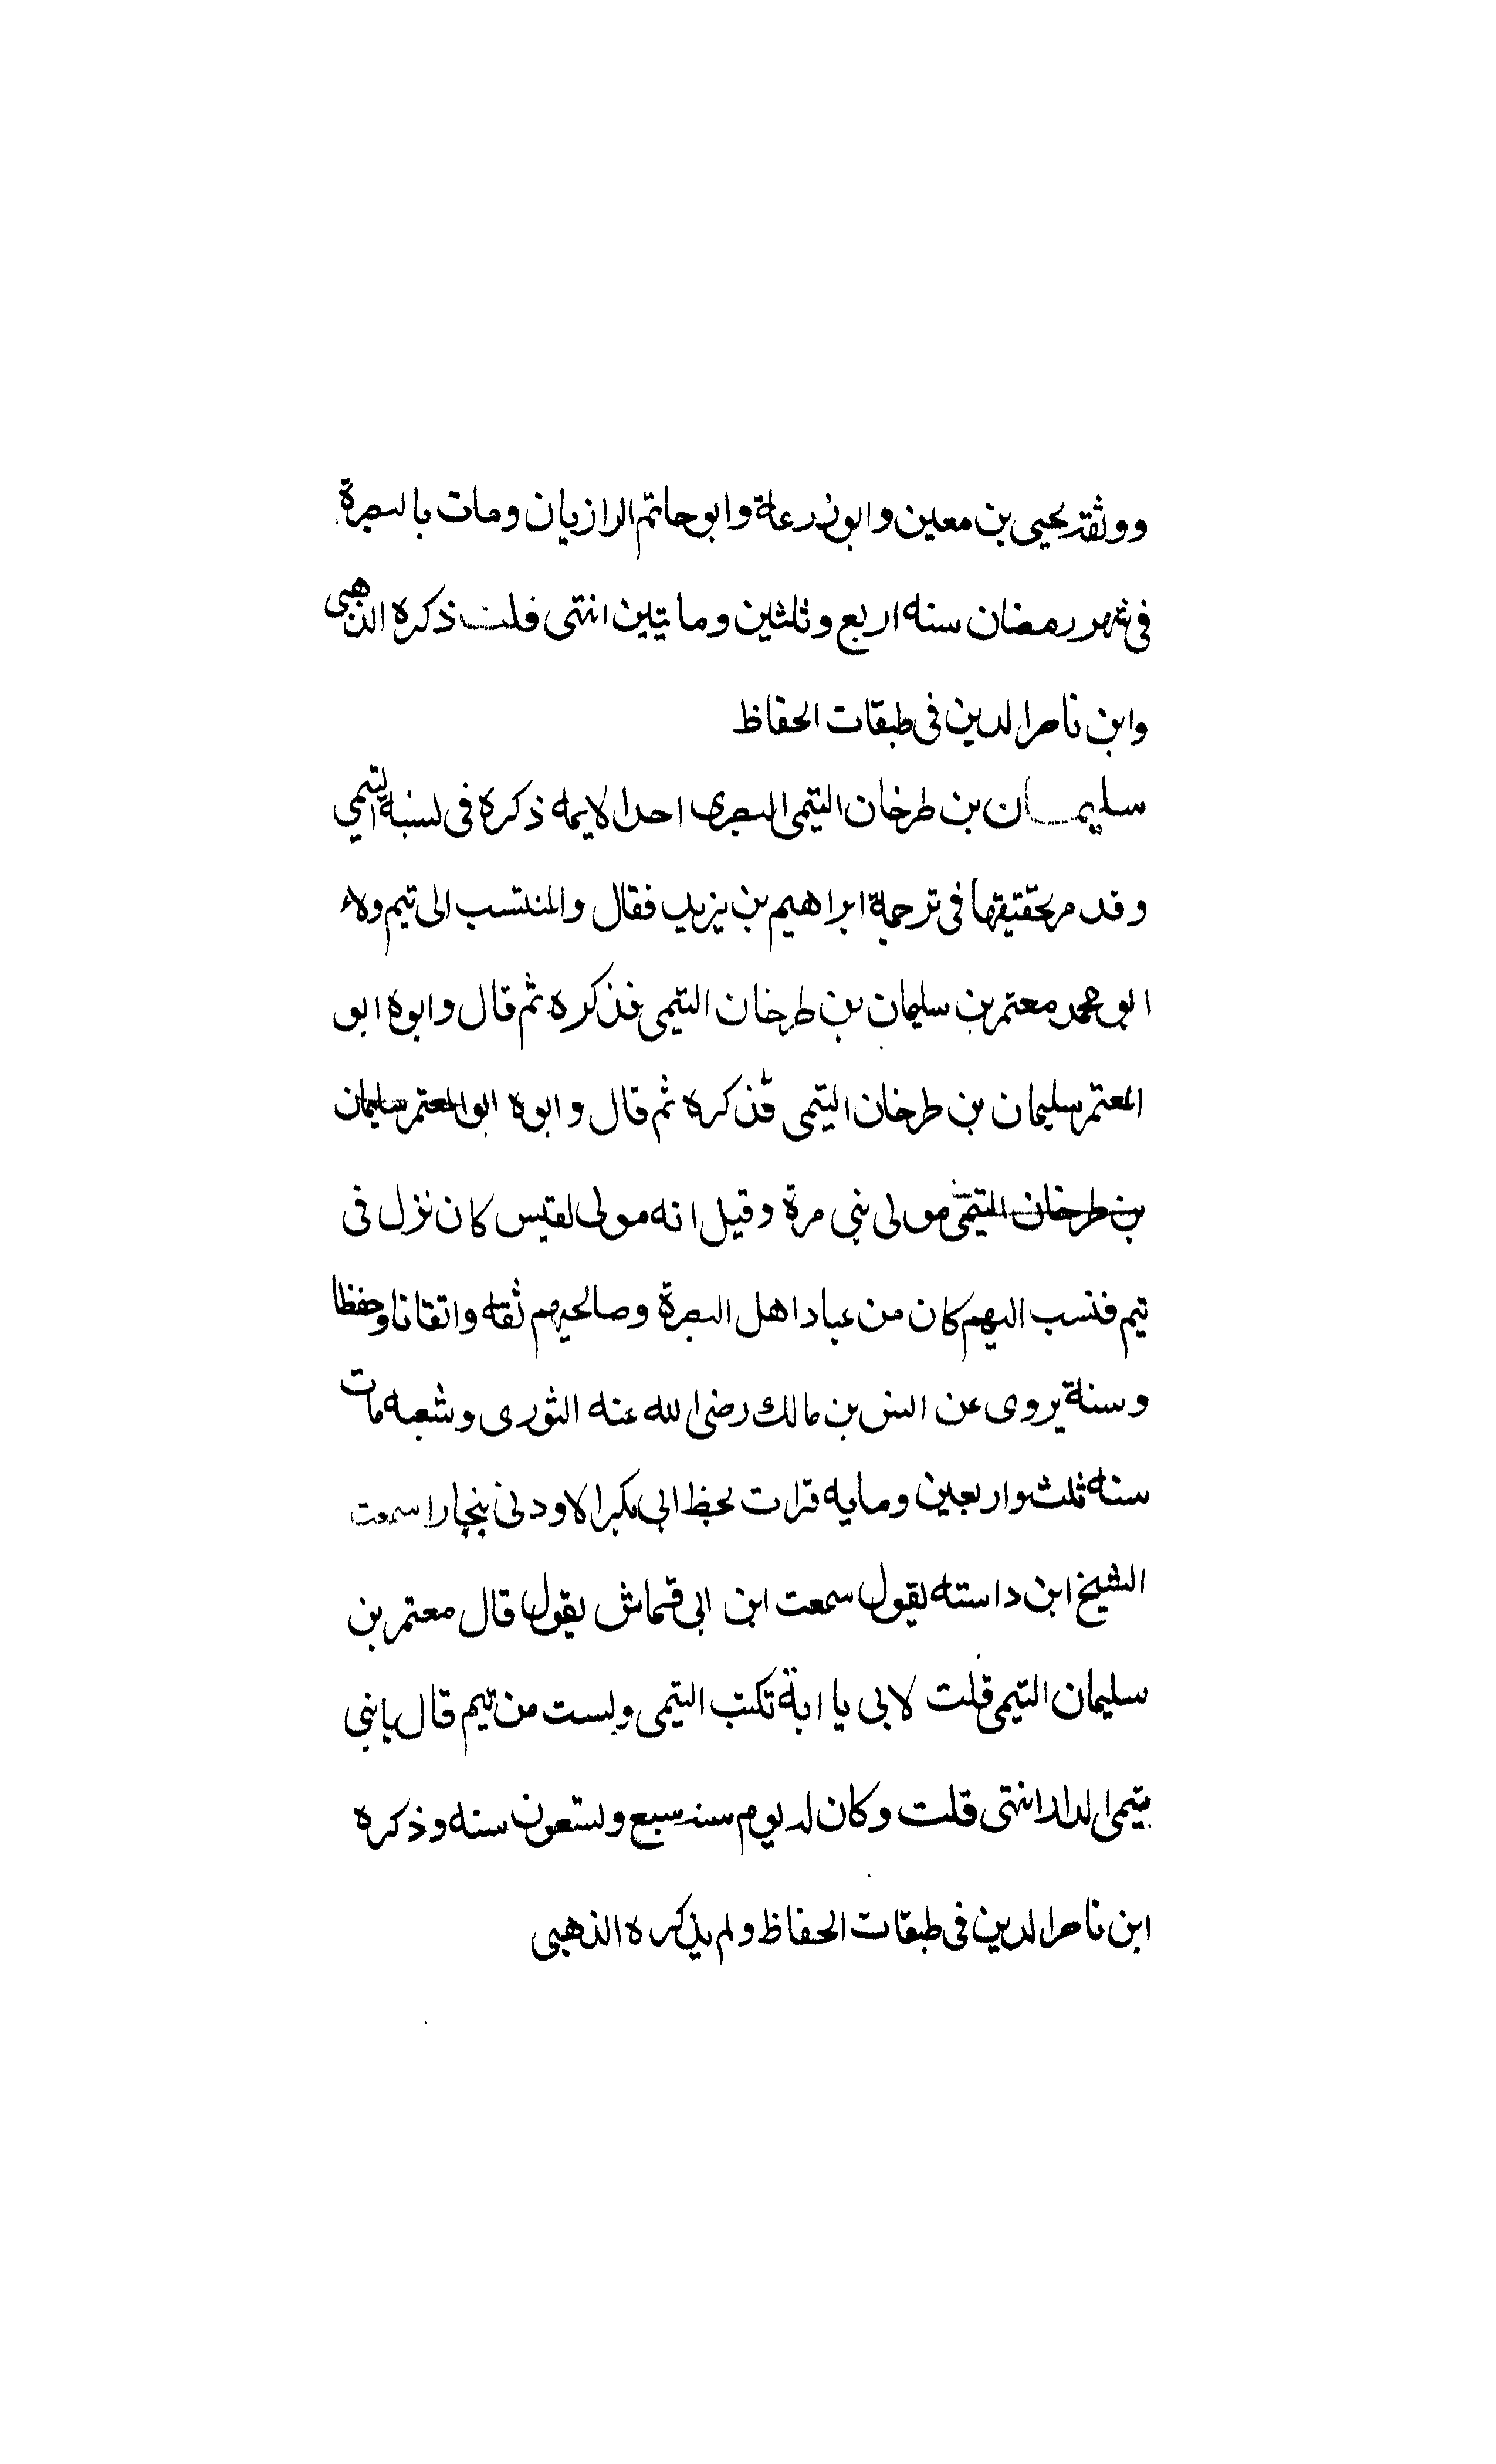 ووثقه يحيى بن معين وابو زرعة وابو حاتم الرازيان ومات بالبصرة
فى شهر رمضان سنه اربع وثلثين ومايتين انتهى قلت ذكره الذهبى
وابن ناصر الدين فى طبقات الحفاظ
سليمان بن طرخان التيمى البصرى احد الايمه ذكره فى نسبة التيمي
وقد مر تحقيقها فى ترجمة ابراهيم بن يزيد فقال والمنتسب الى تيم ولاء
ابو محمد معتمر بن سليمان بن طرخان التيمى فذكره ثم قال وابوه ابو
المعتمر سليمان بن طرخان التيمى فذكره ثم قال وابوه ابو المعتمر سليمان
بن طرخان التيمى مولى بنى مرة وقيل انه مولى لقيس كان نزل فى
تيم فنسب اليهم كان من عباد اهل البصرة وصالحيهم ثقه واتقانا وحفظا
وسنة يروى عن انس بن مالك رضى الله عنه الثورى وشعبه مات
سنه ثلث واربعين ومايه قرات بخط ابى بكر الاودنى ببخارا سمعت
الشيخ ابن داسته يقول سمعت ابن ابى قماش يقول قال معتمر بن
سليمان التيمى قلت لابى يا ابة تكتب التيمى ولست من تيم قال يا بنى
تيمى الدار انتهى قلت وكان له يوم سبع وتسعون سنه وذكره
ابن ناصر الدين فى طبقات الحفاظ ولم يذكره الذهبى